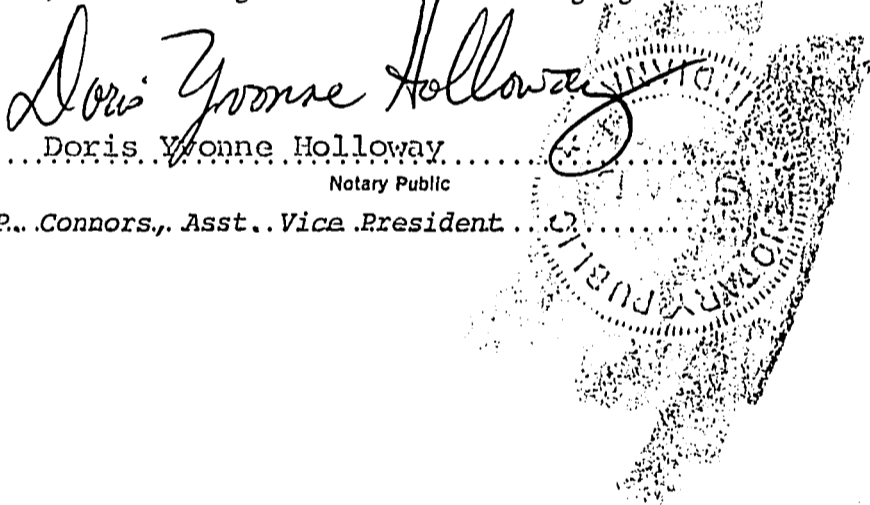 Doris Yvonne Holloway
Doris Yvonne Holloway
Notary Public
P. Connors, Asst. Vice President
NOTARY PUBLIC